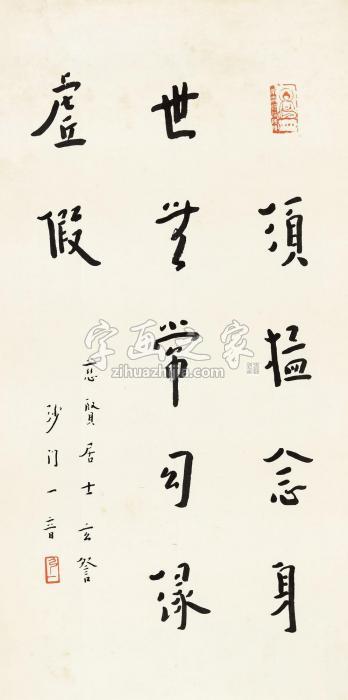 須猛念身
世無常勿緣
虛假
賢居士玄詧
沙門一音
字画之家
zihuazhijia.com